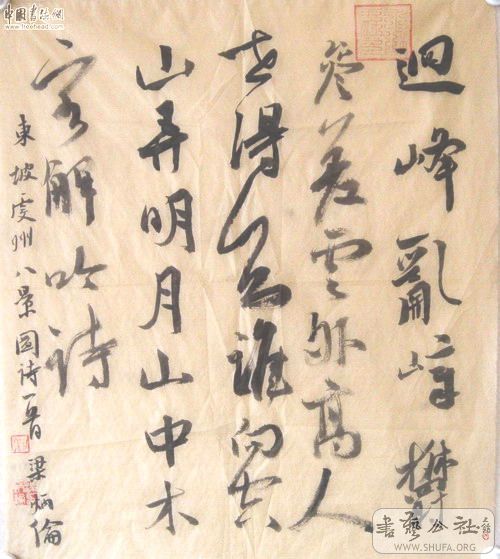 迴峰亂嶂鬱
參差雲外高人
世得知誰向空
山弄明月山中木
客解吟詩
東坡虔州八景圖詩一首 梁炳倫
中國書法網
www.freehead.com
書藝公社
WWW.SHUFA.ORG